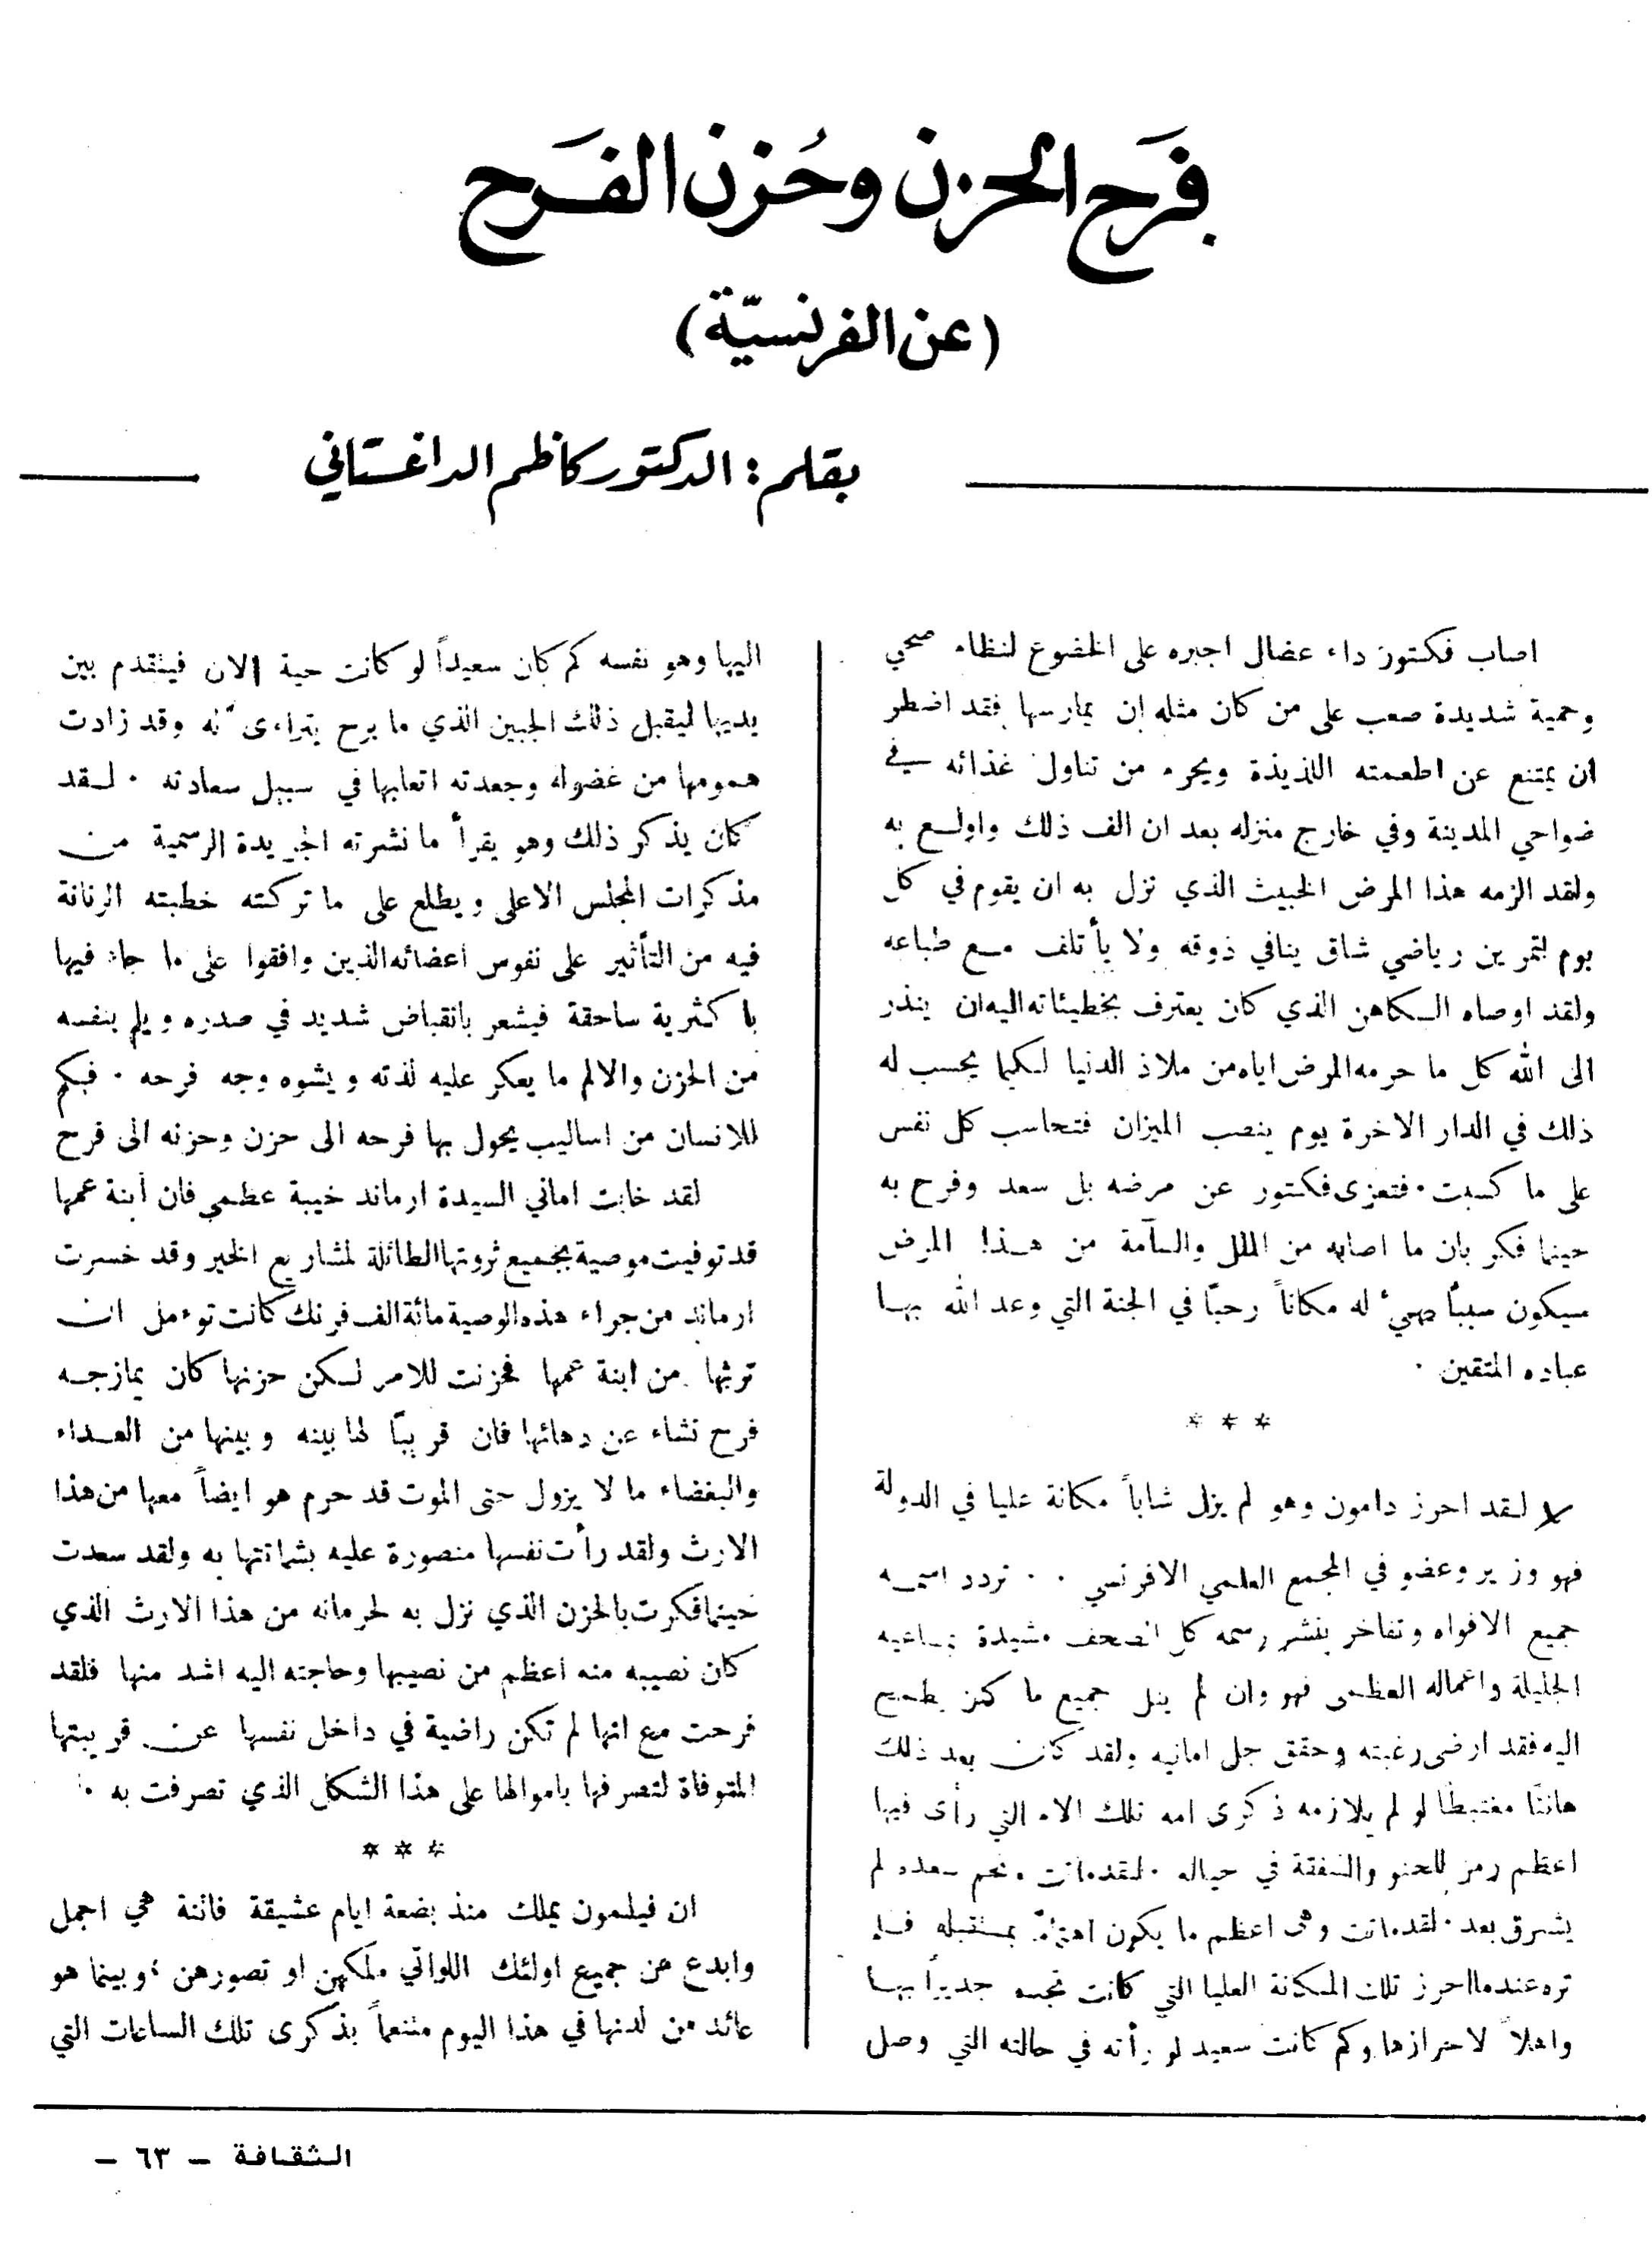 فرَح الحزن وحُزن الفَرح
(عن الفرنسيّة)
بقلم : الدكتور كاظم الداغستاني
اصاب فكتور داء عضال اجبره على الخضوع لنظام صحي
وحمية شديدة صعب على من كان مثله ان يمارسها فقد اضطر
ان يمتنع عن اطعمته اللذيذة ويحرم من تناول غذائه في
ضواحي المدينة وفي خارج منزله بعد ان الف ذلك واولع به
ولقد الزمه هذا المرض الخبيث الذي نزل به ان يقوم في كل
يوم لتمرين رياضي شاق ينافي ذوقه ولا يأتلف مع طباعه
ولقد اوصاه الكاهن الذي كان يعترف بخطيئاته اليه ان ينذر
الى الله كل ما حرمه المرض اياه من ملاذ الدنيا لكيما يحسب له
ذلك في الدار الاخرة يوم ينصب الميزان فتحاسب كل نفس
على ما كسبت . فتعزى فكتور عن مرضه بل سعد وفرح به
حينما فكر بان ما اصابه من الملل والسآمة من هذا المرض
سيكون سبباً يهيء له مكاناً رحبّا في الجنة التي وعد الله بها
عباده المتقين .
* * *
لقد احرز دامون وهو لم يزل شاباً مكانة عليا في الدولة
فهو وزير وعضو في المجمع العلمي الافرنسي . . تردد اسمه
جميع الافواه وتفاخر بنشر رسمه كل الصحف مشيدة بمساعيه
الجليلة واعماله العظمى فهو وان لم ينل جميع ما كان يطمح
اليه فقد ارضى رغبته وحقق جل امانيه ولقد كان بعد ذلك
هانئا مغتبطا لو لم يلازمه ذكرى امه تلك الام التي رأى فيها
اعظم رمز للحنو والشفقة في حياته . لقد ماتت ونجم سعده لم
يشرق بعد . لقد ماتت وهي اعظم ما يكون اهتماماً بمستقبله فلم
تره عندما احرز تلك المكانة العليا التي كانت تحسبه جديراً بها
واهلاً لاحرازها وكم كانت سعيدة لو رأته في حالته التي وصل
اليها وهو نفسه كم كان سعيداً لو كانت حية الان فيتقدم بين
يديها ليقبل ذلك الجبين الذي ما برح يتراءى له وقد زادت
همومها من غضونه وجعدته اتعابها في سبيل سعادته . لقد
كان يذكر ذلك وهو يقرأ ما نشرته الجريدة الرسمية من
مذكرات المجلس الاعلى ويطلع على ما تركته خطبته الرنانة
فيه من التأثير على نفوس اعضائه الذين وافقوا على ما جاء فيها
باكثرية ساحقة فيشعر بانقباض شديد في صدره ويلم بنفسه
من الحزن والالم ما يعكر عليه لذته ويشوه وجه فرحه . فبكم
للانسان من اساليب يحول بها فرحه الى حزن وحزنه الى فرح
لقد خابت اماني السيدة ارماند خيبة عظمى فان ابنة عمها
قد توفيت موصية بجميع ثروتها الطائلة لمشاريع الخير وقد خسرت
ارماند من جراء هذه الوصية مائة الف فرنك كانت توءمل ان
ترثها من ابنة عمها فحزنت للامر لكن حزنها كان يمازجه
فرح نشاء عن دهائها فان قريبّا لها بينه وبينها من العداء
والبغضاء ما لا يزول حتى الموت قد حرم هو ايضاً معها من هذا
الارث ولقد رأت نفسها منصورة عليه بشماتتها به ولقد سعدت
حينما فكرت بالحزن الذي نزل به لحرمانه من هذا الارث الذي
كان نصيبه منه اعظم من نصيبها وحاجته اليه اشد منها فلقد
فرحت مع انها لم تكن راضية في داخل نفسها عن قريبتها
المتوفاة لتصرفها باموالها على هذا الشكل الذي تصرفت به .
* * *
ان فيلمون يملك منذ بضعة ايام عشيقة فاتنة هي اجمل
وابدع من جميع اولئك اللواتي ملكهن او تصورهن ؛ وبينما هو
عائد من لدنها في هذا اليوم متنعماً بذكرى تلك الساعات التي
الثقافة - ٦٣ -